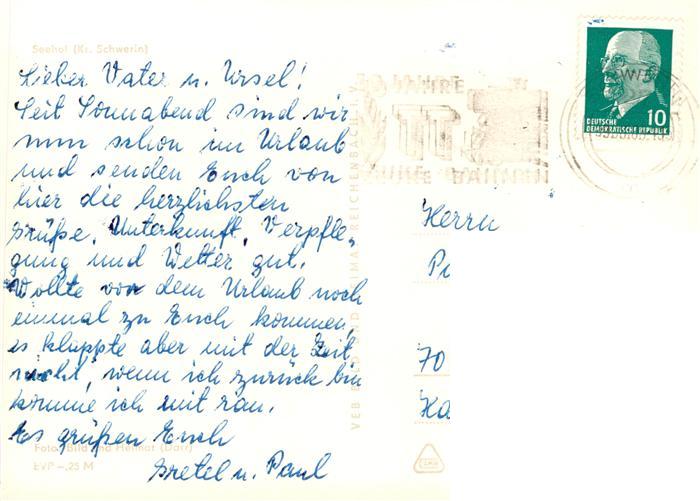 Seehof (Kr. Schwerin)
Lieber Vater u. Ursel!
Seit Sonnabend sind wir
nun schon im Urlaub
und senden Euch von
hier die herzlichsten
Grüße. Unterkunft, Verpfle-
gung und Wetter gut.
Wollte vor dem Urlaub noch
einmal zu Euch kommen,
es klappte aber mit der Zeit
nicht, wenn ich zurück bin
komme ich mit ran.
Es grüßen Euch
Gretel u. Paul
Foto: Bild und Heimat (Darr)
EVP -,25 M
VEB BILD UND HEIMAT REICHENBACH I. V.
JAHRE
DEUTSCHE
DEMOKRATISCHE REPUBLIK
10
Herrn
70